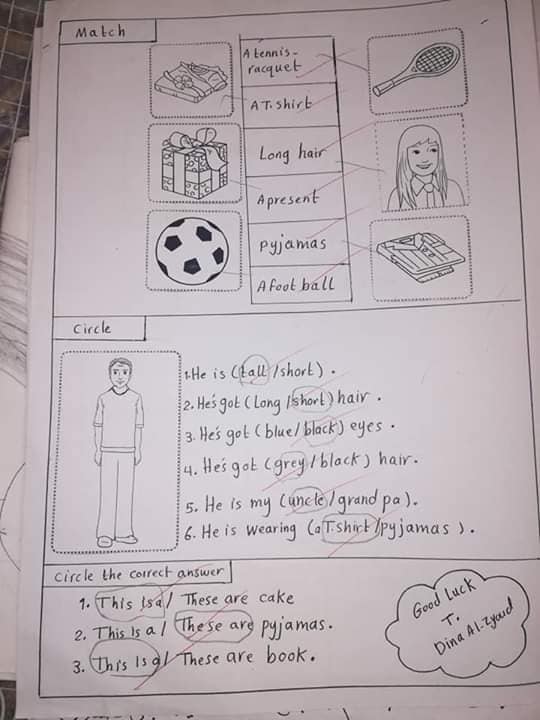 Match
A tennis-
racquet
A T.shirt
Long hair
A present
pyjamas
A foot ball
Circle
1. He is (tall /short) .
2. He's got (Long /short) hair .
3. He's got (blue/black) eyes .
4. He's got (grey/black) hair.
5. He is my (uncle/grand pa).
6. He is wearing (a Tshirt/pyjamas ).
Circle the correct answer
1. This is a / These are cake
2. This Is a / These are pyjamas.
3. This Is a / These are book.
Good Luck
T.
Dina Al-Zyoud